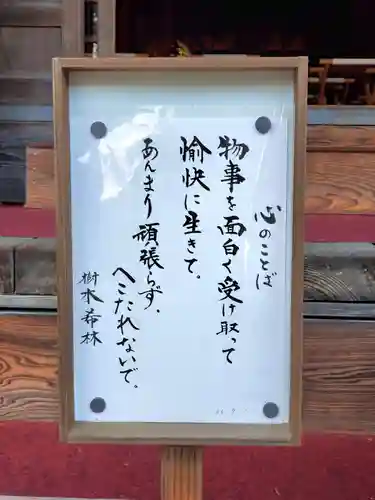 心のことば
物事を面白く受け取って
愉快に生きて。
あんまり頑張らず、
へこたれないで。
樹木希林